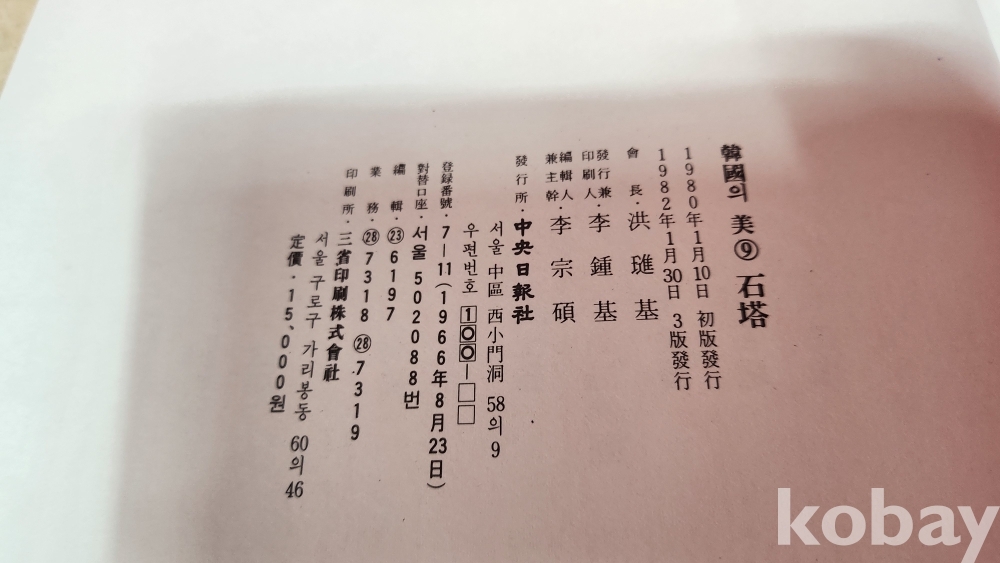 韓國의 美 ⑨ 石塔
1980年1月10日 初版發行
1982年1月30日 3版發行
會長·洪璡基
發行兼印刷人·李鍾基
編輯人兼主幹·李宗碩
發行所·中央日報社
서울 中區 西小門洞 58의 9
우편번호 100-□□
登録番號·7-11(1966年8月23日)
對替口座·서울 502088번
編輯·㉓6197
業務·㉘7318 ㉘7319
印刷所·三省印刷株式會社
서울 구로구 가리봉동 60의 46
定價·15,000원
kobay